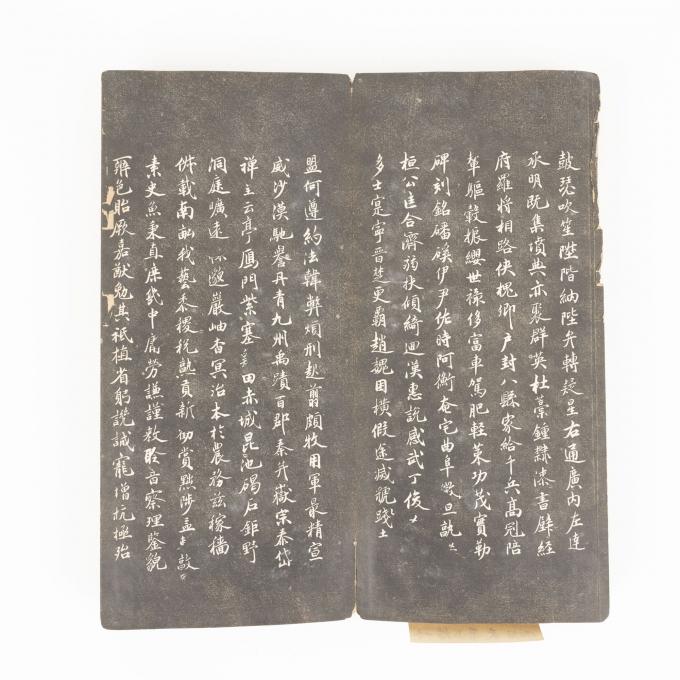 皷瑟吹笙陞階納陛弁轉疑星右通廣內左達
承明既集墳典亦聚群英杜藁鍾隸漆書壁經
府羅將相路俠槐卿戶封八縣家給千兵高冠陪
輦驅轂振纓世祿侈富車駕肥輕策功茂實勒
碑刻銘磻溪伊尹佐時阿衡奄宅曲阜微旦孰
桓公匡合濟弱扶傾綺迴漢惠說感武丁俊乂
多士寔寧晉楚更霸趙魏困橫假途滅虢踐土
盟何遵約法韓弊煩刑起翦頗牧用軍最精宣
威沙漠馳譽丹青九州禹蹟百郡秦并嶽宗泰岱
禪主云亭鴈門紫塞田赤城昆池碣石鉅野
洞庭曠遠邈巖岫杳冥治本於農務茲稼穡
俶載南畝我藝黍稷稅熟貢新勸賞黜陟孟敦
素史魚秉直庶幾中庸勞謙謹敕聆音察理鑒貌
辨色貽厥嘉猷勉其祗植省躬譏誡寵增抗極殆